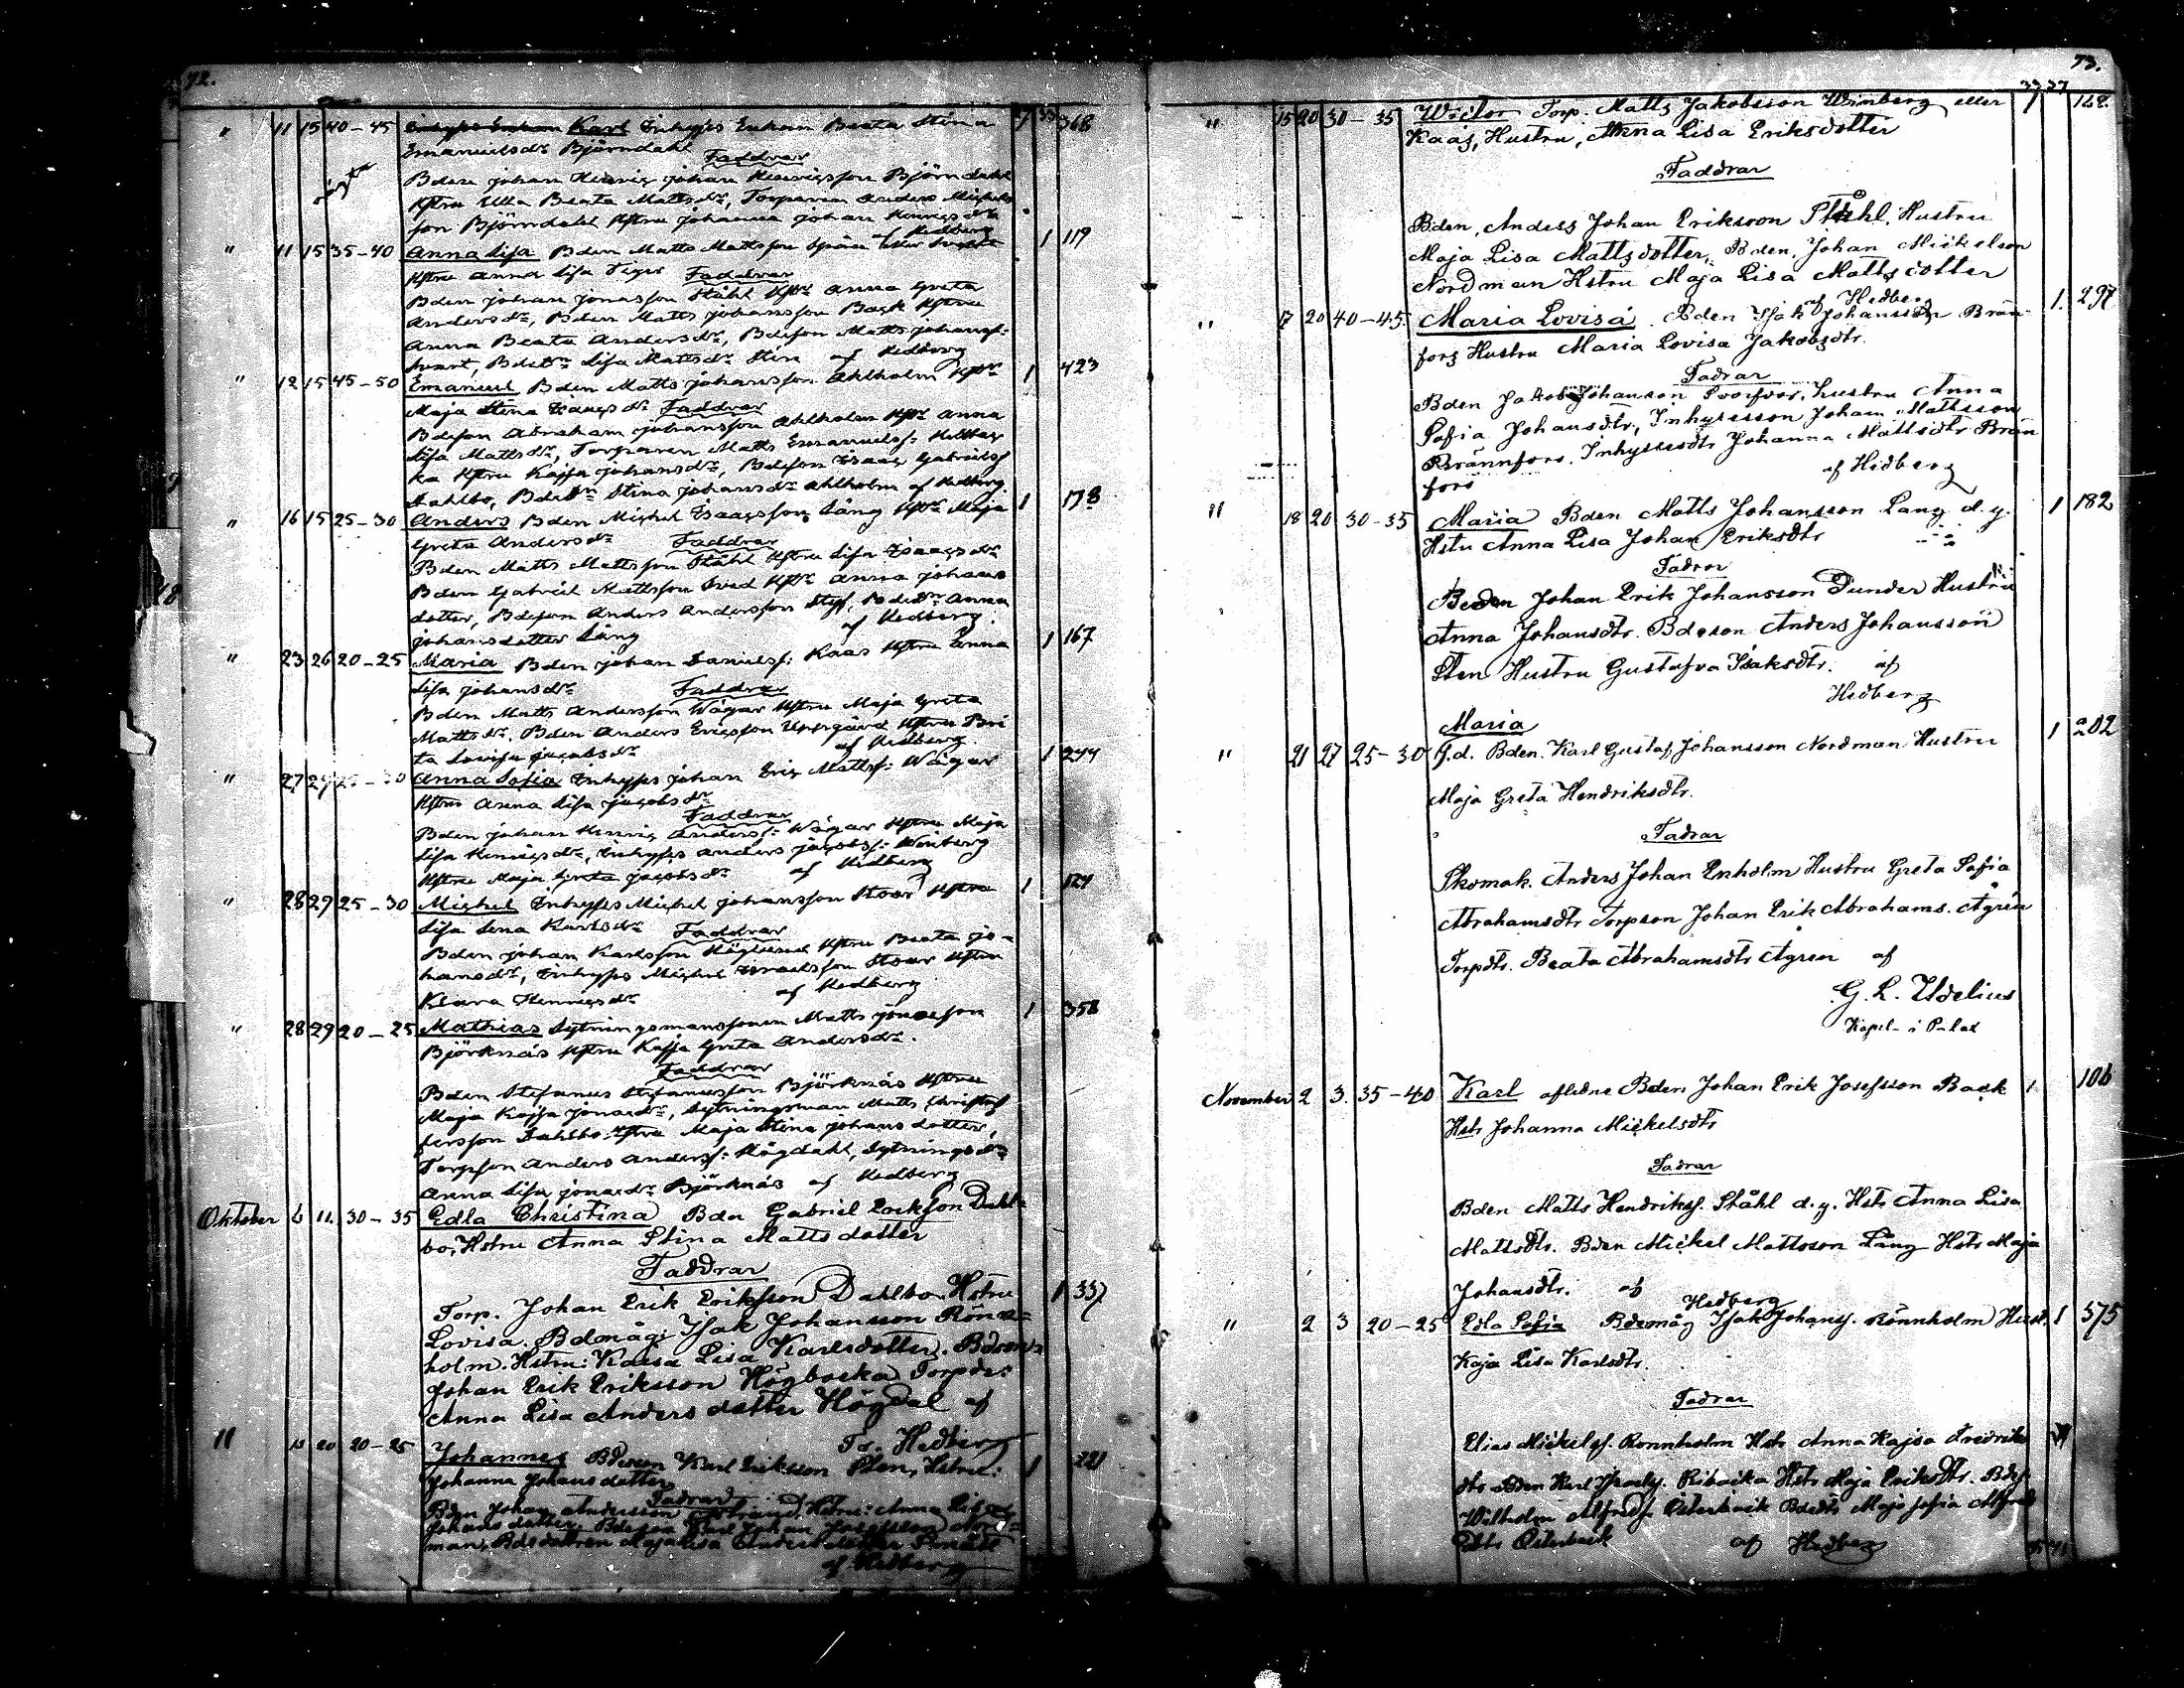 72.
" 11 15 40-45 Karl Inhyses Enkan Beata Stina 368
Emanuelsdr Björndahl Faddrar
Bden Johan Henric Johan Henricsson Björndahl
Hstru Ulla Beata Mattsdr, Torparen Anders Michels
son Björndahl Hstru Johanna Johan Hennesdr
af Hedberg
" 11 15 35-40 Anna Lisa Bden Matts Mattsson 1 119
Hstru Anna Lisa Tiger Faddrar
Bden Johan Jonasson Ståhl Hstr Anna Greta
Andersdr, Bden Matts Johansson Back Hstru
Anna Beata Andersdr, Bdeson Matts Johans:
Svart, Bdetr Lisa Mattsdr Sten af Hedberg
" 12 15 45-50 Emanuel Bden Matts Johansson Ahlholm Hstr 1 423
Maja Stina Isaacsdr Faddrar
Bdeson Abraham Johansson Ahlholm Hstr Anna
Lisa Mattsdr, Torparen Matts Emanuels:
ka Hstru Kajsa Johansdr, Bdeson Isaac Gabriels
Dahlbo, Bdetr Stina Johansdr Ahlholm af Hedberg
" 16 15 25-30 Anders Bden Michel Isaacsson Lång Hstr Maja 1 178
Greta Andersdr Faddrar
Bden Matts Mattsson Ståhl Hstru Lisa Isaacsdr
Bden Gabriel Mattsson Sved Hstr Anna Johans
dotter, Bdeson Anders Andersson Styf, Bdedtr Anna
Johansdotter Lång af Hedberg.
" 23 26 20-25 Maria Bden Johan Daniels: Kaas Hstru Anna 1 167
Lisa Johansdr Faddrar
Bden Matts Andersson Wägar Hstru Maja Greta
Mattsdr, Bden Anders Ericsson Hstru Bri
ta Lovisa Jacobsdr af Hedberg.
" 27 29 25-30 Anna Sofia Inhyses Johan Eric Matts: Wägar 1 244
Hstru Anna Lisa Jacobsdr
Faddrar
Bden Johan Henric Anders: Wägar Hstru Maja
Lisa Henricsdr, Inhyses Anders Jacobs: Winberg
Hstru Maja Greta Jacobsdr af Hedberg
" 28 29 25-30 Michel Inhyses Michel Johansson Stoor Hstru 1 124
Lisa Lena Karlsdr Faddrar
Bden Johan Karlsson Höglund Hstru Beata Jo-
hansdr, Inhyses Michel Israelsson Stoor Hstru
Klara Hennesdr af Hedberg
" 28 29 20-25 Mathias Sytningsmanssonen Matts Jonasson 1 358
Björknäs Hstru Kajsa Greta Andersdr.
Faddrar
Bden Stefanus Stefanusson Björknäs Hstru
Maja Kajsa Jonasdr, Sytningsman Matts Christof
fersson Dahlbo Hstru Maja Stina Johansdotter,
Torpson Anders Anders: Högdahl, Sytningsdr
Anna Lisa Jonasdr Björknäs af Hedberg
Oktober 6 11. 30-35 Edla Christina Bden Gabriel Erikson Dahl-
bo, Hstru Anna Stina Mattsdotter
Faddrar
Torp. Johan Erik Eriksson Dahlbo Hstru 1 337
Lovisa. Bdemåg: Isak Johansson Rönn-
holm. Hstru: Kaisa Lisa Karlsdotter. Bdeson:
Johan Erik Eriksson Högbacka Torpdr:
Anna Lisa Andersdotter Högdal af
Fr. Hedberg
" 15 20 20-25 Johannes Bdeson Karl Eriksson Sten, Hstru: 1 221
Johanna Johansdotter
Fadrar
Bden Johan Andersson Hstru: Anna Lisa
Johansdotter, Bdeson Karl Johan Josefsson Nord-
man, Bdedottren Maja Lisa Andersdotter
af Hedberg
73.
33 37
" 15 20 30-35 Wictor Torp. Matts Jakobsson Winberg eller 1 128.
Kaas, Hustru, Anna Lisa Eriksdotter
Faddrar
Bden, Anders Johan Eriksson Ståhl, Hustru
Maja Lisa Mattsdotter, Bden, Johan Mickelson
Nordman Hstru Maja Lisa Mattsdotter
af Hedberg
" 17 20 40-45 Maria Lovisa Bden Isak Johansson Brän- 1. 297
fors Hustru Maria Lovisa Jakobsdtr.
Fadrar
Bden Jakob Johanson hustru Anna
Sofia Johansdtr, Inhysesson Johan Mattsson
Brännfors. Inhysesdtr Johanna Mattsdtr Brän
fors af Hedberg
" 18 20 30-35 Maria Bden Matts Johansson Lang d.y. 1 182
Hstu Anna Lisa Johan Eriksdtr
Fadror
Beden Johan Erik Johansson Dunder Hustru
Anna Johansdtr. Bdeson Anders Johansson
Sten Hustru Gustafva Isaksdtr. af
Hedberg
Maria
" 21 27 25-30 f.d. Bden. Karl Gustaf Johansson Nordman Hustru 1 202
Maja Greta Hendriksdtr.
Fadrar
Skomak. Anders Johan Enholm Hustru Greta Sofia
Abrahamsdtr Torpson Johan Erik Abrahams. Ågren
Torpdtr. Beata Abrahamsdtr Ågren af
G. L. Udelius
Kapel- i P-lax
November 2 3. 35-40 Karl aflidne Bden Johan Erik Josefsson Back 1 106
Hstr Johanna Mickelsdtr
Fadrar
Bden Matts Hendriks. Ståhl d.y. Hstr Anna Lisa
Mattsdtr. Bden Mickel Mattsson Lång Hstr Maja
Johansdtr. af
Hedberg
" 2 3 20-25 Edla Sofia Bdemåg Isak Johans. Rönnholm Hust. 1 375
Kaja Lisa Karlsdtr.
Fadrar
Elias Mickels. Rönnholm Hstr Anna Kajsa Fredriks
dtr Bden Karl Hstr Maja Eriksdtr. Bdes
Wilhelm Alfreds. Österback Bdedtr Maja Sofia Alfreds
dtr Österback af Hedberg